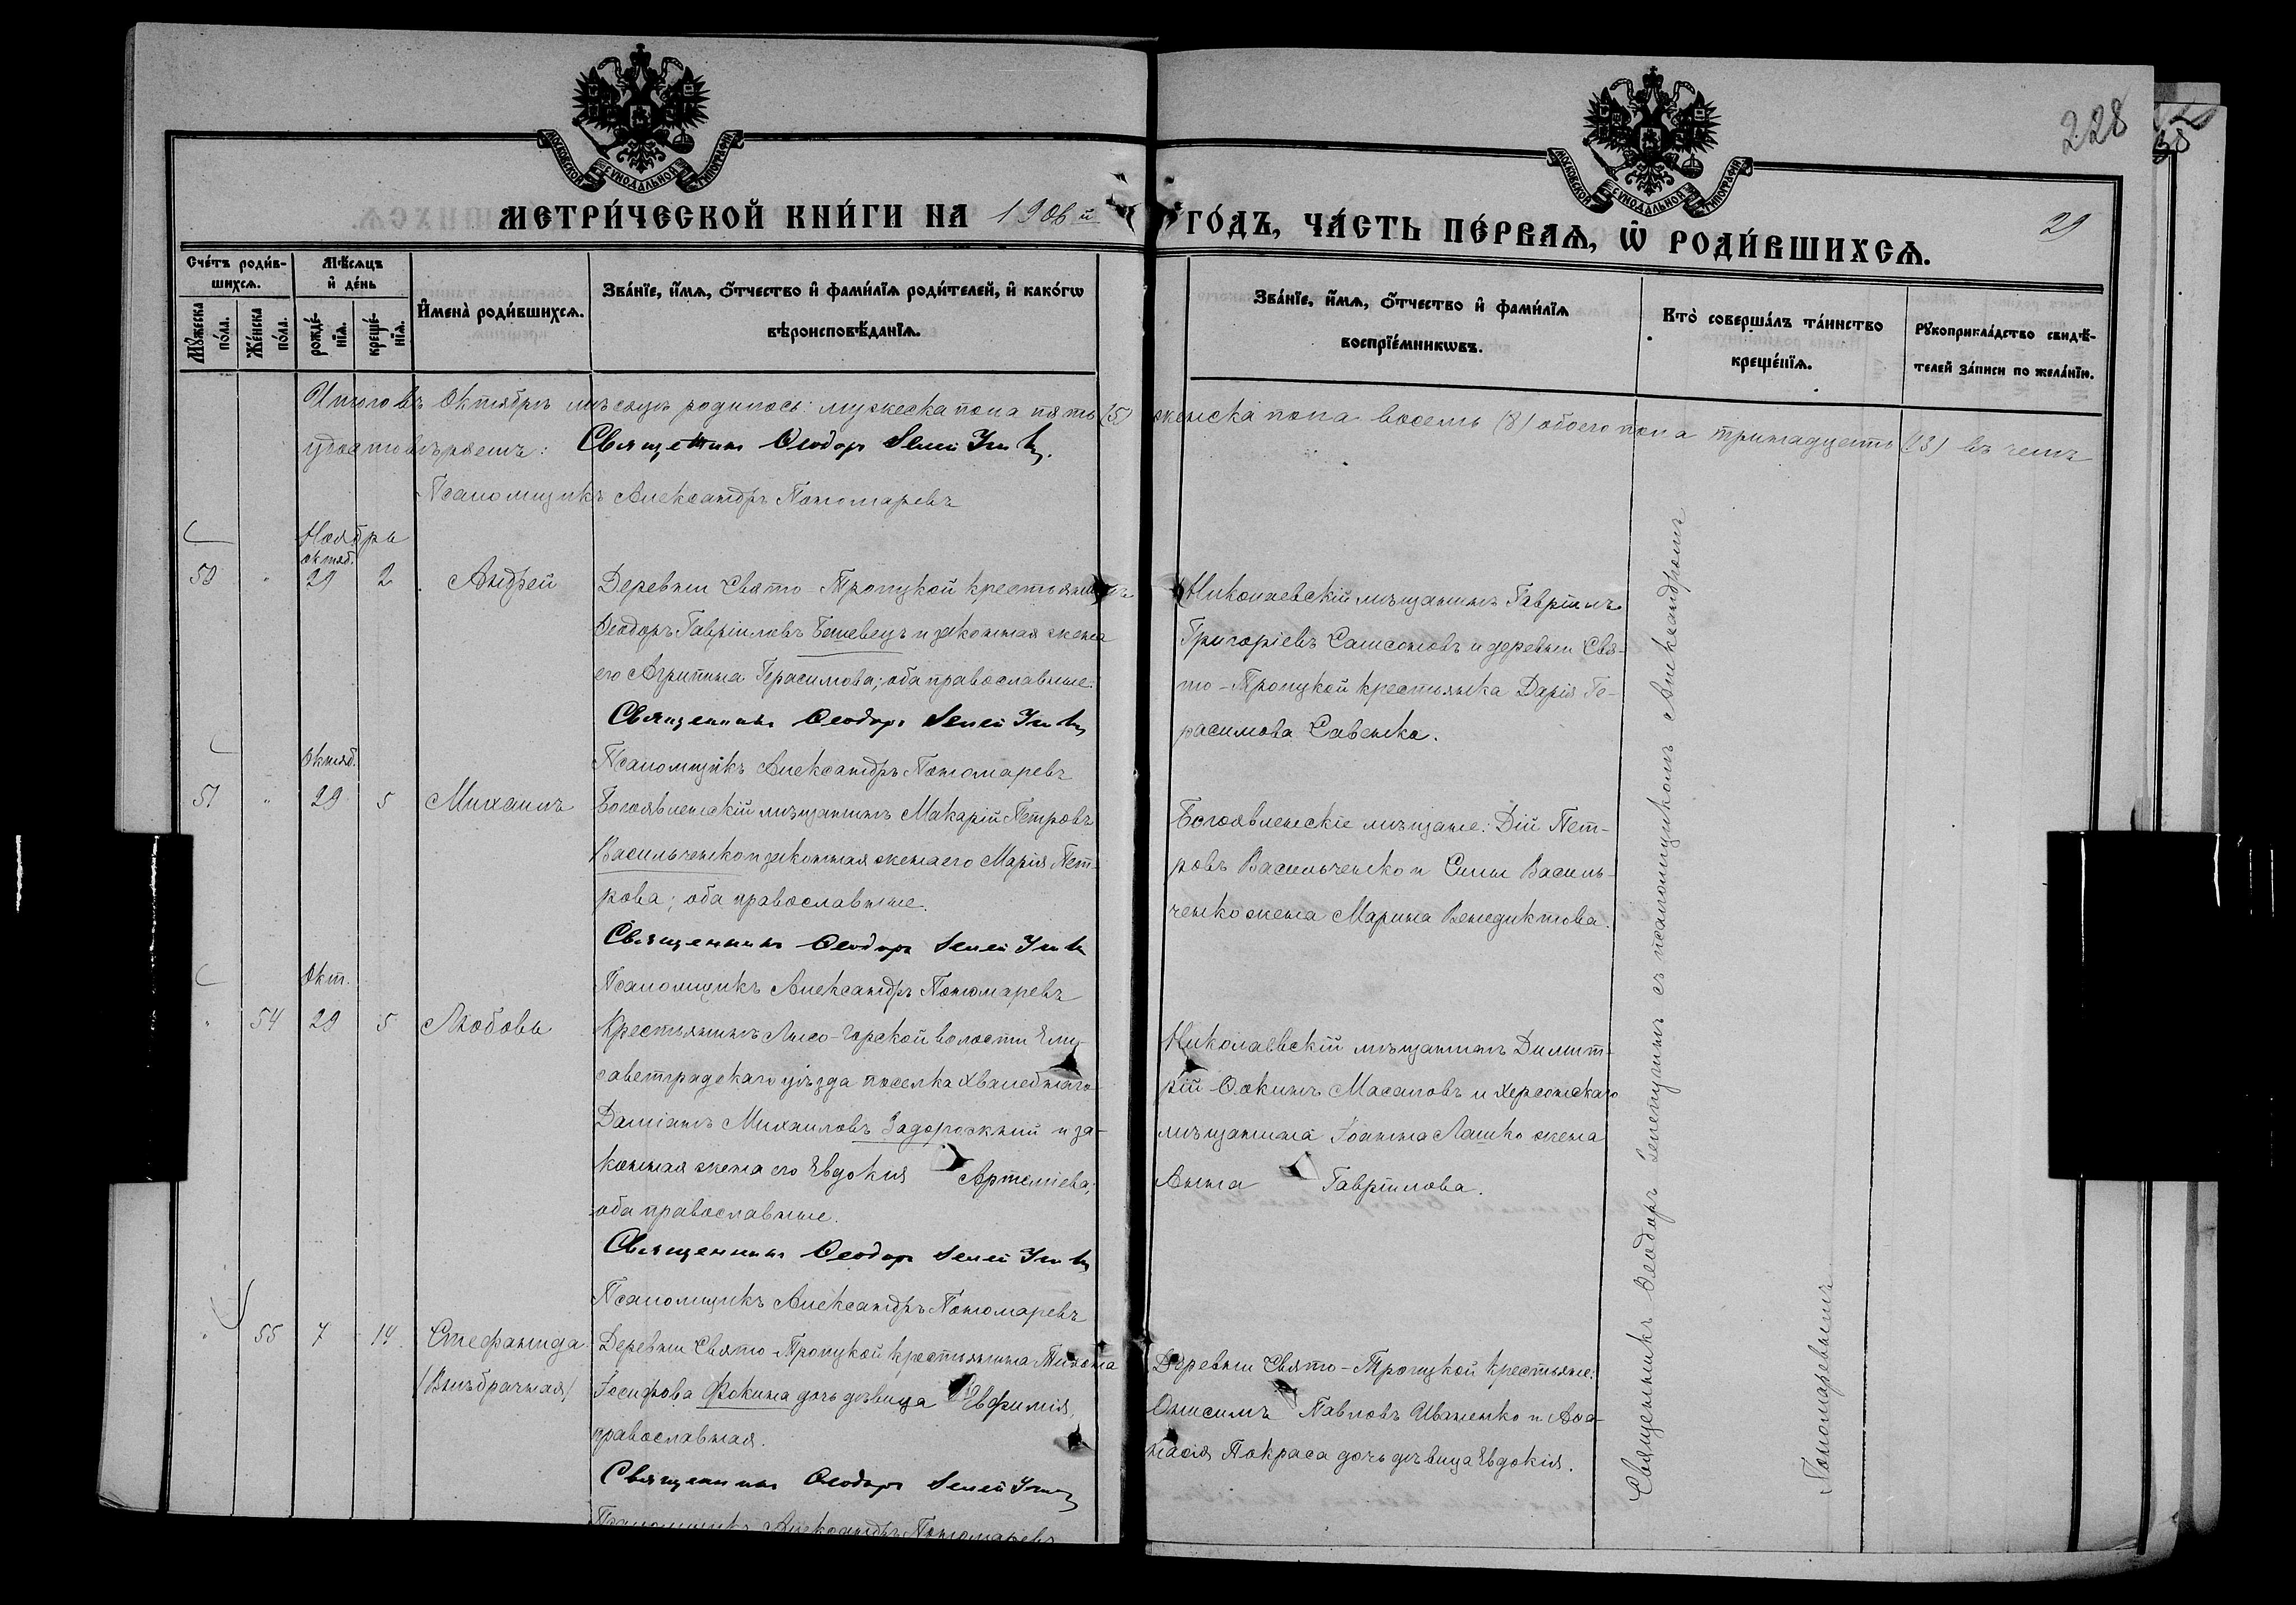 МОСКОВСКОЙ СѴНОДАЛЬНОЙ ТИПОГРАФІИ
МЕТРИ́ЧЕСКОЙ КНИ́ГИ НА 1906 й
Сче́тъ роди́в-
шихсѧ.
Мѣ́сѧцъ
и҆ де́нь
Мꙋ́жеска
по́ла.
Же́нска
по́ла.
рожде́-
нїѧ.
креще́-
нїѧ.
И҆мена̀ роди́вшихсѧ.
Зва́нїе, и҆́мѧ, ѻ҆́тчество и҆ фами́лїѧ роди́телей, и҆ како́гѡ
вѣроисповѣ́данїѧ.
МОСКОВСКОЙ СѴНОДАЛЬНОЙ ТИПОГРАФІИ
228
29
ГО́ДЪ, ЧА́СТЬ ПЕ́РВАѦ, Ѡ҆ РОДИ́ВШИХСѦ.
Зва́нїе, и҆́мѧ, ѻ҆́тчество и҆ фами́лїѧ
воспрїе́мникѡвъ.
Кто̀ соверша́лъ та́инство
креще́нїѧ.
Рꙋкоприкла́дство свидѣ́-
телей за́писи по жела́нїю.
Итого въ Октябрѣ мѣсяцѣ родилось: мужеска пола пять (5) женска пола восемь (8) обоего пола тринадцать (13) въ чемъ
удостовѣряемъ: Священникъ Ѳеодоръ
Псаломщикъ Александръ Пономаревъ
Ноябрь
октяб.
50 " 29 2 Андрей
Деревни Свято-Троицкой крестьянинъ
Ѳеодоръ Гавріиловъ Бешевецъ и законная жена
его Агрипина Герасимова; оба православные.
Священникъ Ѳеодоръ
Псаломщикъ Александръ Пономаревъ
Николаевскій мѣщанинъ Гавріилъ
Григоріевъ Самсоновъ и деревни Свя-
то-Троицкой крестьянка Дарія Ге-
расимова Савенка.
Октяб.
51 " 29 5 Михаилъ
Богоявленскій мѣщанинъ Макарій Петровъ
Васильченко и законная жена его Марія Пет-
рова; оба православные.
Священникъ Ѳеодоръ
Псаломщикъ Александръ Пономаревъ
Богоявленскіе мѣщане: Дій Пет-
ровъ Васильченко и Силы Василь-
ченко жена Марина Венедиктова.
Окт.
" 54 29 5 Любовь
Крестьянинъ Лысо-Горской волости Ели-
саветградскаго уѣзда поселка Хвалебнаго
Даміанъ Михаиловъ Задорожный и за-
конная жена его Евдокія Артеміева;
оба православные.
Священникъ Ѳеодоръ
Псаломщикъ Александръ Пономаревъ
Николаевскій мѣщанинъ Димит-
рій Ѳокинъ Масаловъ и Херсонскаго
мѣщанина Іоанна Лашко жена
Анна Гавріилова.
" 55 7 14 Стефанида
(Внѣбрачная)
Деревни Свято-Троицкой крестьянина Тихона
Іосифова Фокина дочь дѣвица Евфимія,
православная.
Священникъ Ѳеодоръ
Псаломщикъ Александръ Пономаревъ
Деревни Свято-Троицкой крестьяне:
Онисимъ Павловъ Иваненко и Аѳа-
насія Покраса дочь дѣвица Евдокія.
Священникъ Ѳеодоръ Лепетучинъ съ псаломщикомъ Александромъ
Пономаревымъ